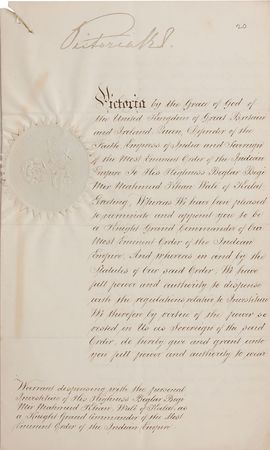 Victoria R I.
20
Victoria by the Grace of God of
the United Kingdom of Great Britain
and Ireland Queen, Defender of the
Faith Empress of India and Sovereign
of the Most Eminent Order of the Indian
Empire To His Highness Beglar Begi
Mir Mahmud Khan Wali of Kelat
Greeting, Whereas We have been pleased
to nominate and appoint you to be
a Knight Grand Commander of Our
Most Eminent Order of the Indian
Empire, And whereas in and by the
Statutes of Our said Order, We have
full power and authority to dispense
with the regulations relative to Investiture
We therefore by virtue of the power so
vested in Us as Sovereign of the said
Order, do hereby give and grant unto
you full power and authority to wear
Warrant dispensing with the personal
Investiture of His Highness Beglar Begi
Mir Mahmud Khan, Wali of Kelat, as
a Knight Grand Commander of the Most
Eminent Order of the Indian Empire